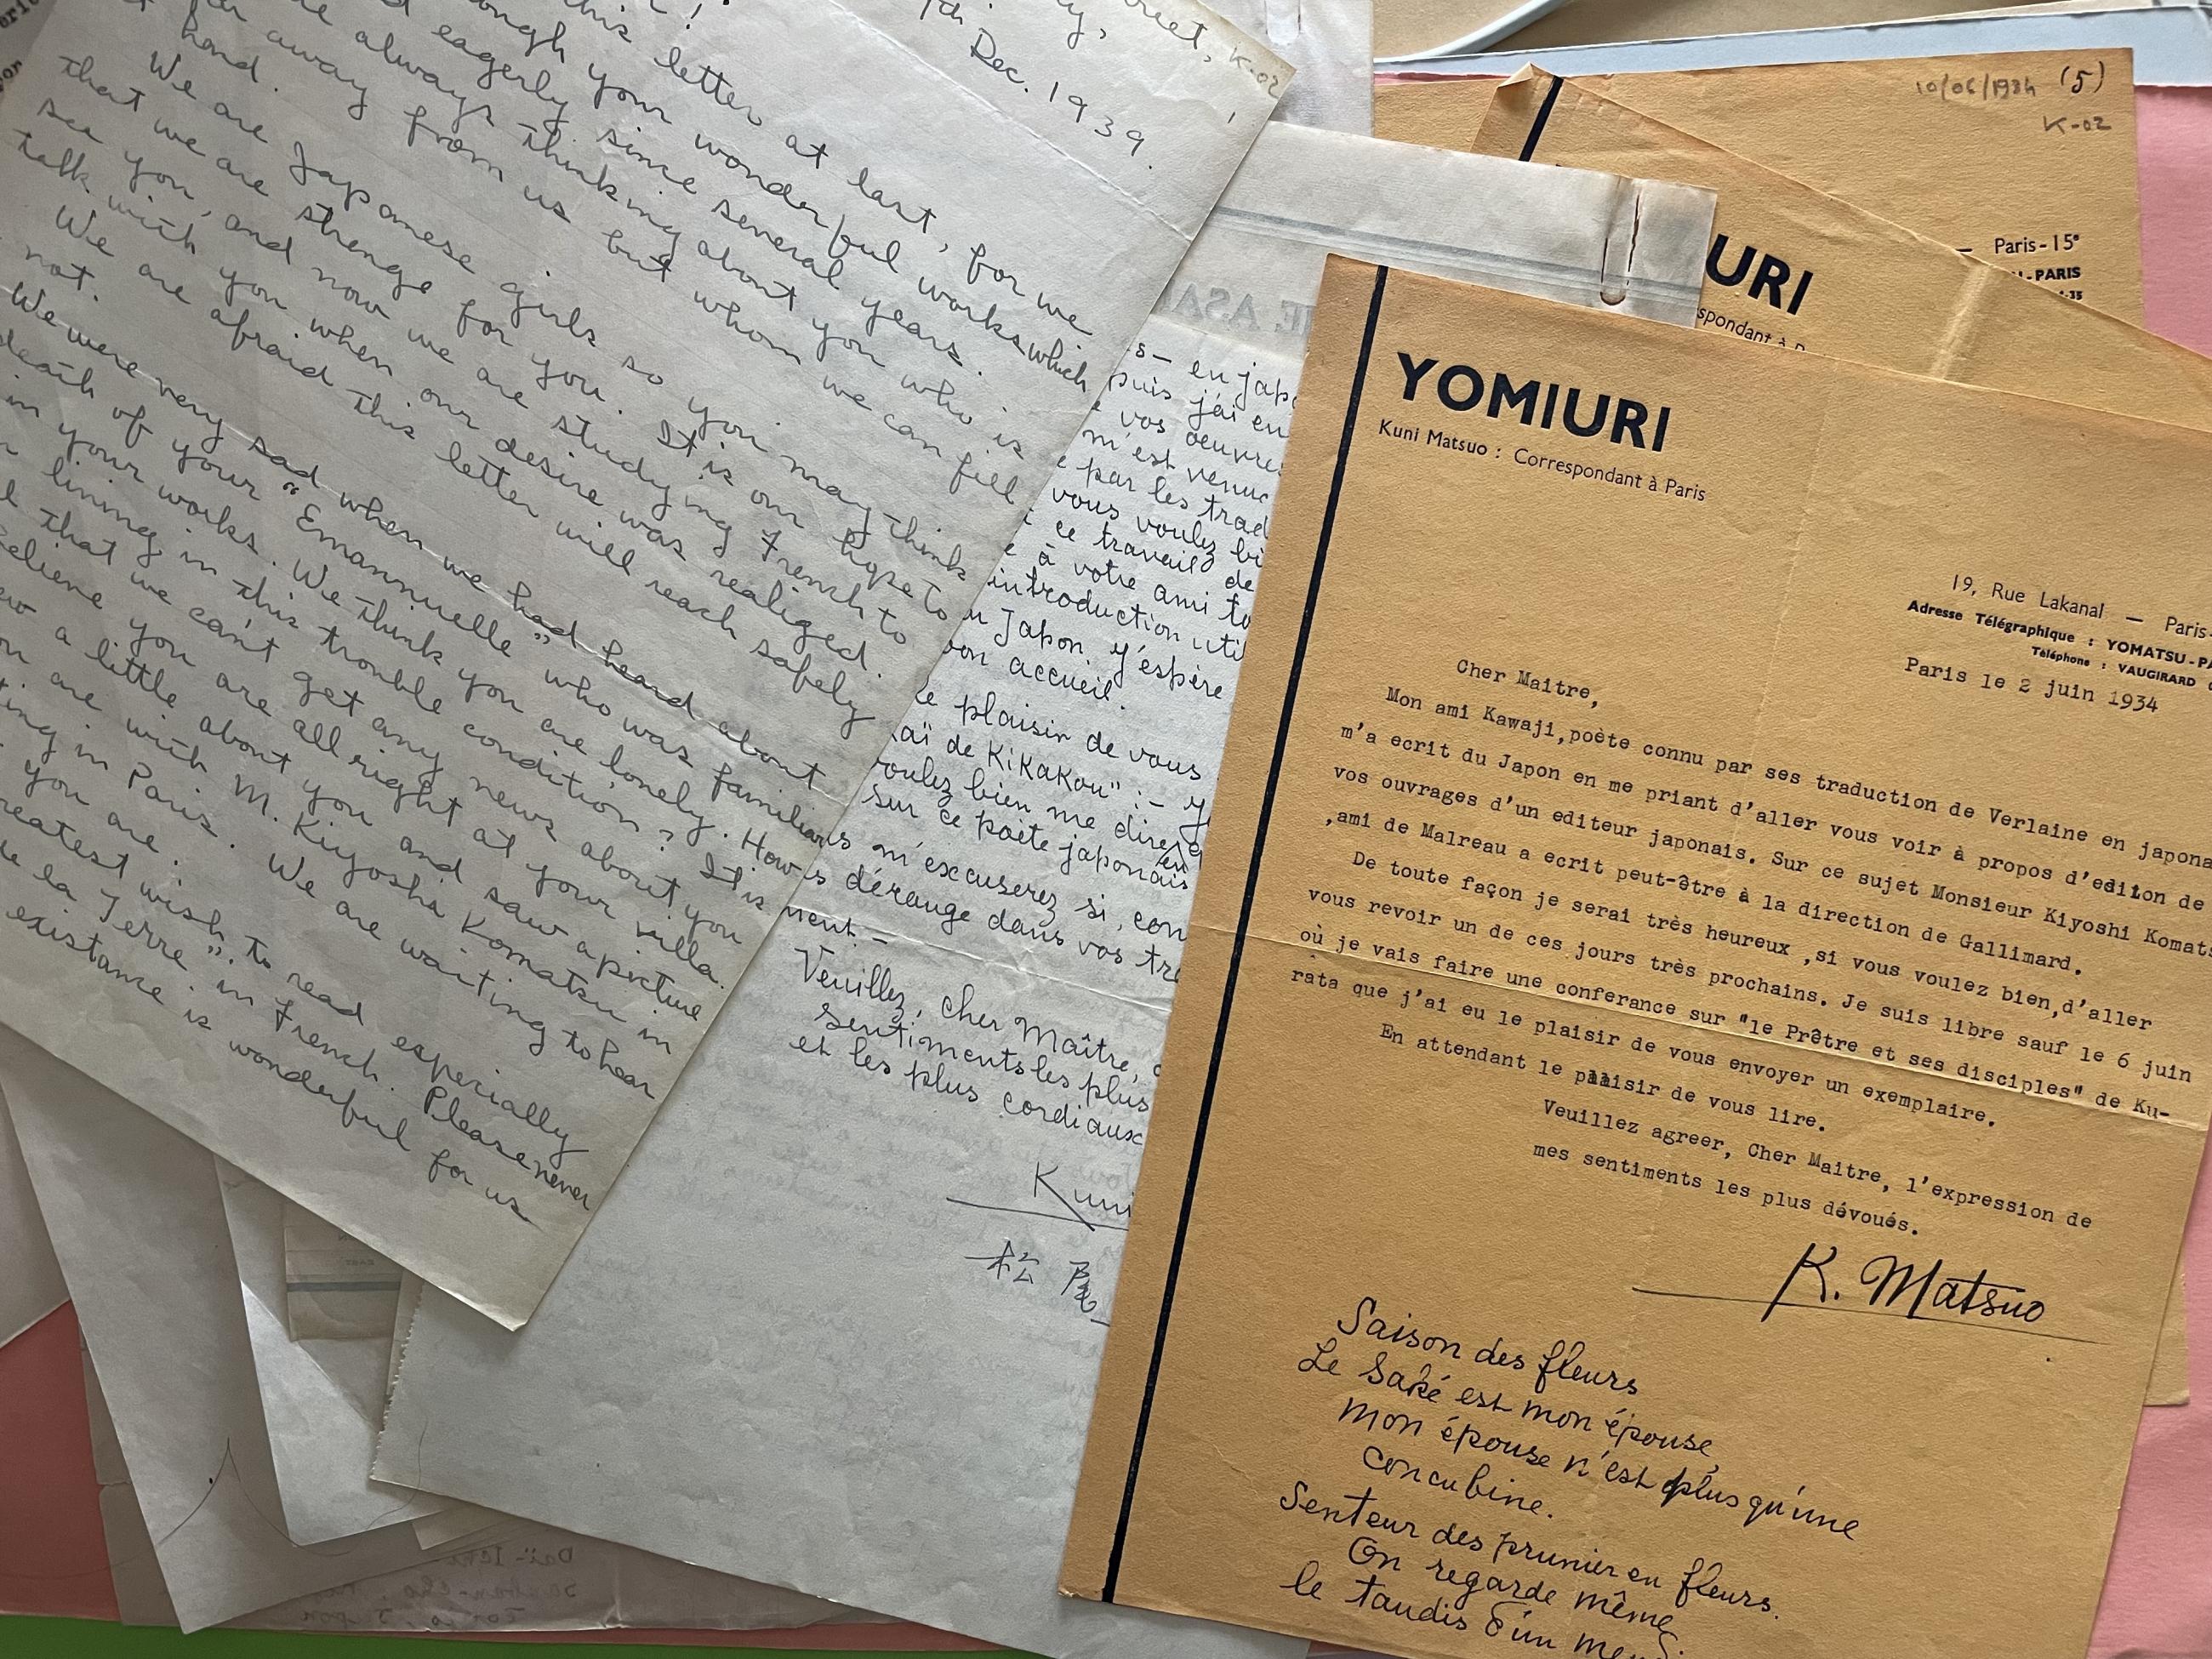 oreet, K-02
Dec. 1939.
this letter at last, for we
your wonderful works which
eagerly since several years.
always thinking about you who is
far away from us but whom we can fill
hand.
We are Japanese girls so you may think
that we are strenge for you. It is our hope to
see you, and now we are studying French to
talk with you when our desire was realiged.
We are afraid this letter will reach safely
not.
We were very sad when we had heard about
death of your "Emannuelle" who was familiar
in your works. We think you are lonely. How
lining in this trouble condition? It is
that we can't get any news about you
believe you are all right at your villa.
a little about you and saw a picture
are with M. Kiyoshi Komatsu in
in Paris. We are waiting to hear
you are.
greatest wish to read especially
de la Terre" in French. Please never
existance is wonderful for us
en japo
puis j'ai en
vos oeuvre
m'est venue
par les trad
vous voulez bi
ce travail de
à votre ami to
introduction util
Japon y'espère
bon accueil.
le plaisir de vous
Kaï de KiKaKou" :-
voulez bien me dire
sur ce poète japonais
en
m'excuserez si, con
dérange dans vos tra
ment -
Veuillez, cher Maître,
sentiments les plus
et les plus cordiaux
Kuni
10/06/1934 (5)
K-02
— Paris-15e
-PARIS
-35
URI
spondant à P
YOMIURI
Kuni Matsuo : Correspondant à Paris
19, Rue Lakanal — Paris-
Adresse Télégraphique : YOMATSU-PA
Téléphone : VAUGIRARD
Paris le 2 juin 1934
Cher Maitre,
Mon ami Kawaji,poète connu par ses traduction de Verlaine en japona
m'a ecrit du Japon en me priant d'aller vous voir à propos d'editon de
vos ouvrages d'un editeur japonais. Sur ce sujet Monsieur Kiyoshi Komats
,ami de Malreau a ecrit peut-être à la direction de Gallimard.
De toute façon je serai très heureux ,si vous voulez bien,d'aller
vous revoir un de ces jours très prochains. Je suis libre sauf le 6 juin
où je vais faire une conferance sur "le Prêtre et ses disciples" de Ku-
rata que j'ai eu le plaisir de vous envoyer un exemplaire.
En attendant le plaisir de vous lire.
Veuillez agreer, Cher Maitre, l'expression de
mes sentiments les plus dévoués.
K. Matsuo
Saison des fleurs
Le Saké est mon épouse,
Mon épouse n'est plus qu'une
concubine.
Senteur des prunier en fleurs.
On regarde même
le taudis d'un men